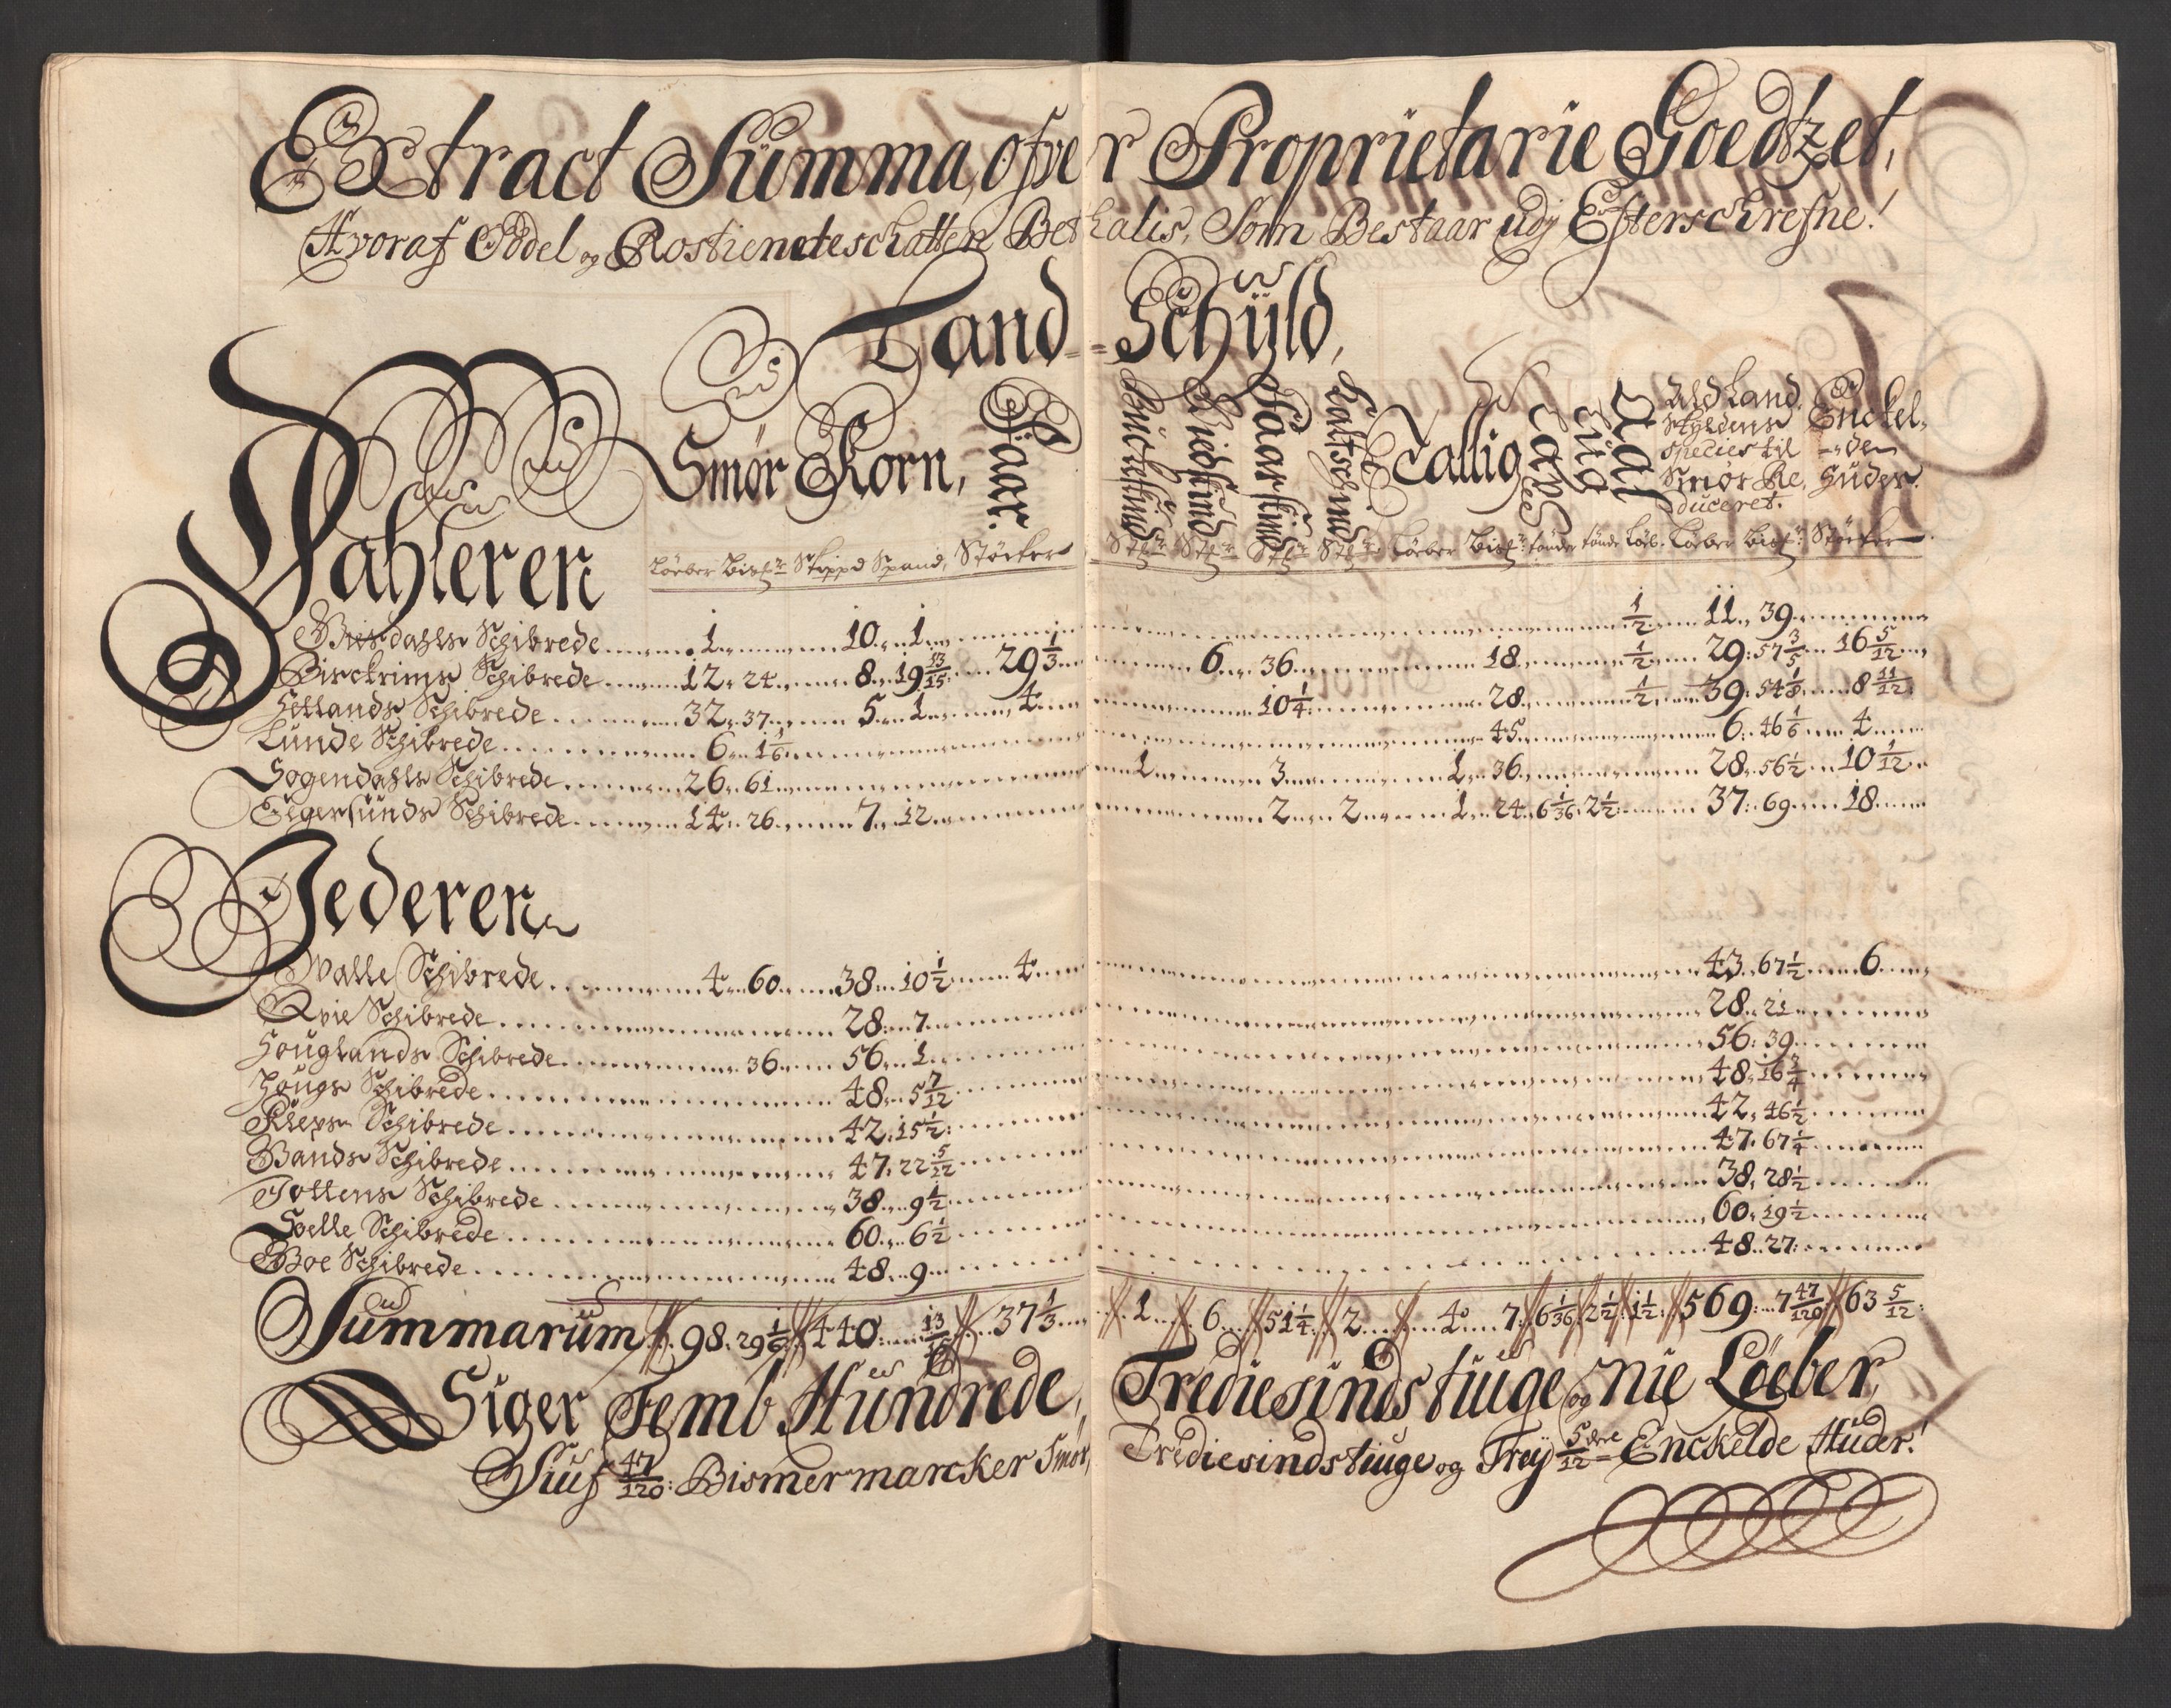 Extract Summa, ofver Proprietarie Goedtzet,
Hvoraf Oddel og Rostiendeschatten Bethalis, Som Bestaar udj Efterschrefne!
Land-Schÿld,
Dahleren
Smør Korn, Huder Buckskind Giedskind Faarskind Kalfschind Tallig
Ald Land skyldens species til Smør Reduceret. Enckelden Huder.
Løeber Bism: Skippd Spand, Støcker Støcher Løeber Bism: tønder tønde Løb. Løeber Bism: Støcker
Bierdahls Schibrede 1 10 1 1/2 11 39
Birckrims Schibrede 12 24 8 19 13/15 29 1/3 6 36 18 1/2 29 57 3/5 16 5/12
Hetlands Schibrede 32 37 5 1 4 10 1/4 28 1/2 39 54 1/8 8 11/12
Lunde Schibrede 6 1 1/6 45 6 46 1/6 4
Sogendahls Schibrede 26 61 1 3 1 36 28 56 1/2 10 1/12
Egersunds Schibrede 14 26 7 12 2 2 1 24 6 1/36 2 1/2 37 69 18
Jederen
Walle Schibrede 4 60 38 10 1/2 4 43 67 1/2 6
Qvie Schibrede 28 7 28 21
Houglands Schibrede 36 56 1 56 39
Hougs Schibrede 48 5 7/12 48 16 3/4
Kleps Schibrede 42 15 1/2 42 46 1/2
Bands Schibrede 47 22 5/12 47 67 1/4
Jottens Schibrede 38 9 1/2 38 28 1/2
Soelle Schibrede 60 6 1/2 60 19 1/2
Boe Schibrede 48 9 48 27
Summarum 98 29 1/6 440 13/15 37 1/3 1 6 51 1/4 2 4 7 6 1/36 2 1/2 1 1/2 569 7 47/120 63 5/12
Siger Femb Hundrede, Trediesindstiuge og nie Løeber,
Siuf 47/120: Bismermarcker Smør, Trediesindstiuge og Treÿ 5/12 dele Enckelde Huder!